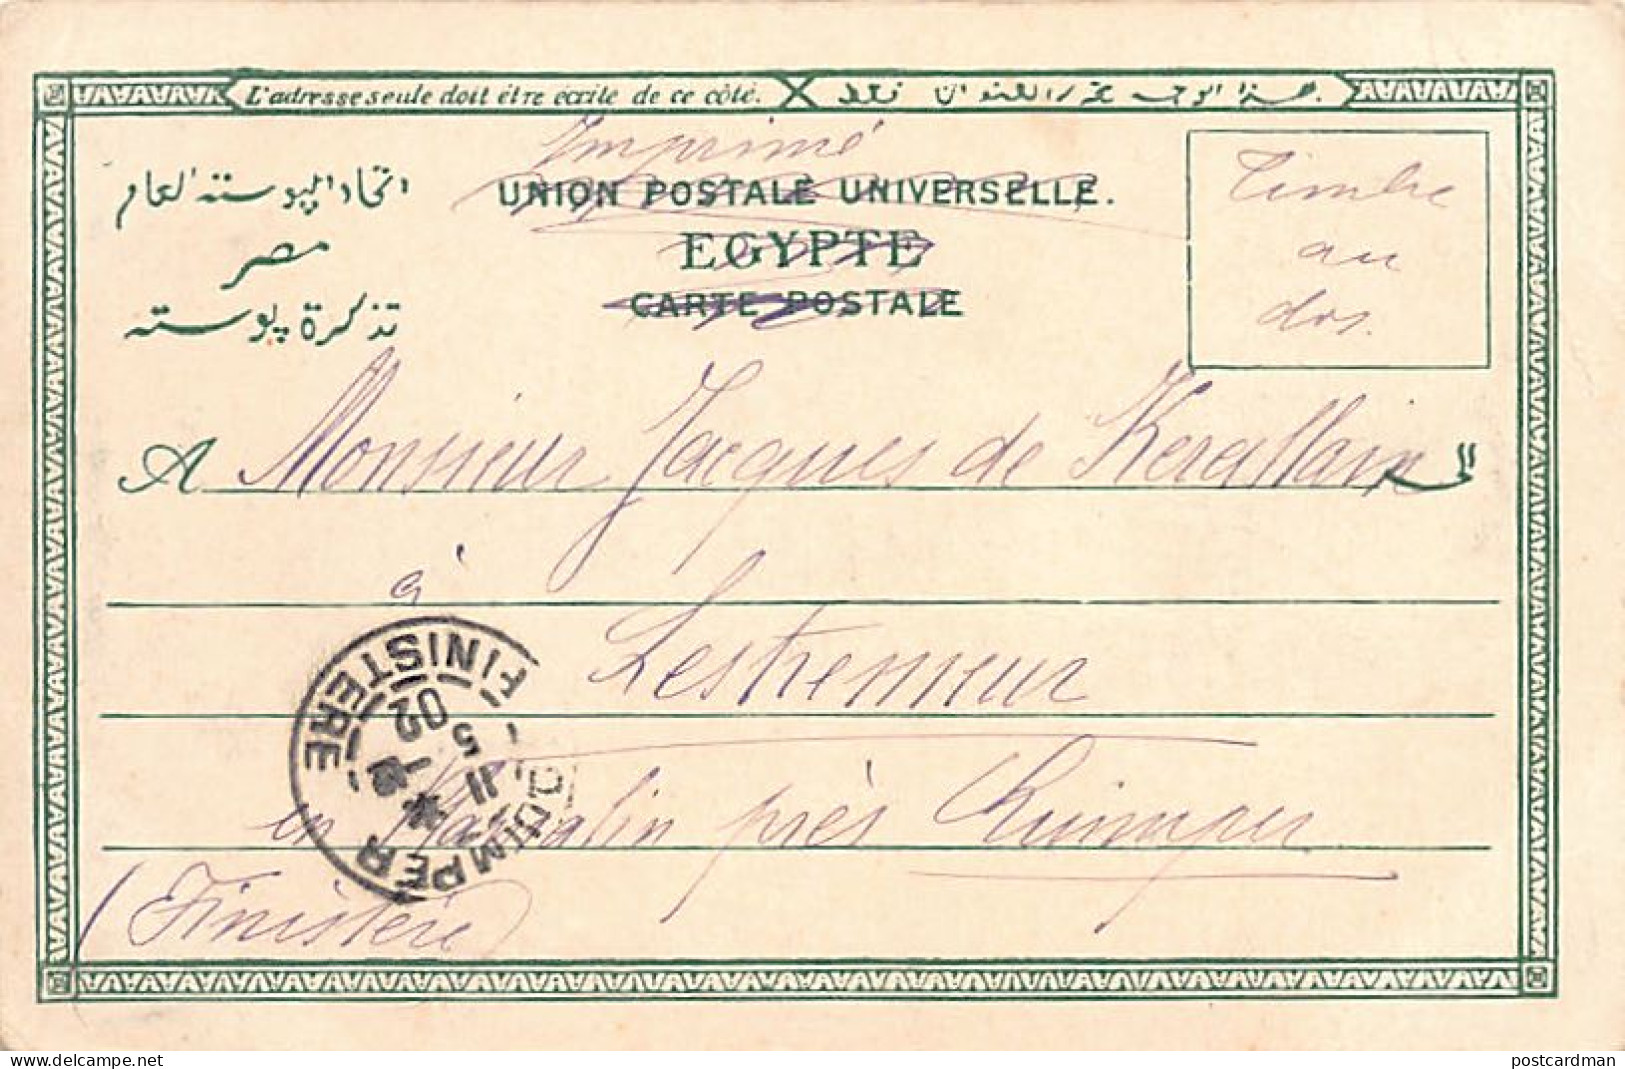 L'adresse seule doit être écrite de ce côté.
هذا الوجه محرر للعنوان فقط
Imprimé
اتحاد البوسته العام
مصر
تذكرة بوسته
UNION POSTALE UNIVERSELLE.
EGYPTE
CARTE POSTALE
Timbre
au
dos.
A Monsieur Jacques de Kerallain الى
à
Lestremeur
en près Quimper
(Finistère)
QUIMPER * FINISTERE
11
5
02
delcampe.net
postcardman